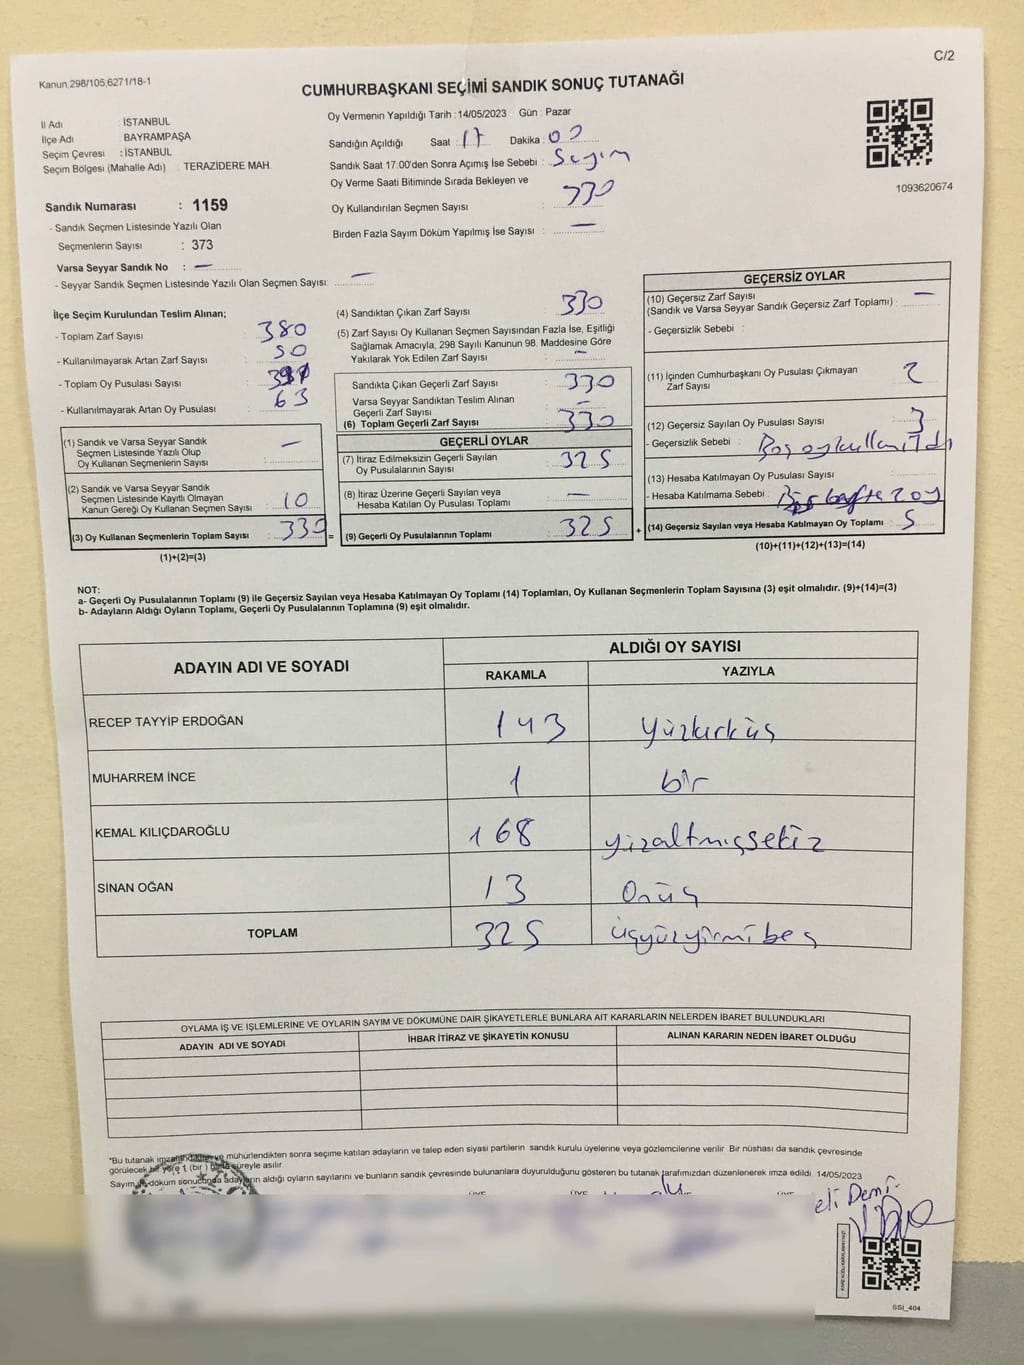 C/2
Kanun.298/105,6271/18-1
CUMHURBAŞKANI SEÇİMİ SANDIK SONUÇ TUTANAĞI
İl Adı : İSTANBUL
İlçe Adı : BAYRAMPAŞA
Seçim Çevresi : İSTANBUL
Seçim Bölgesi (Mahalle Adı) : TERAZİDERE MAH.
Oy Vermenin Yapıldığı Tarih : 14/05/2023 Gün : Pazar
Sandığın Açıldığı Saat : 17 Dakika : 00
Sandık Saat 17.00'den Sonra Açımış İse Sebebi : Seçim
Oy Verme Saati Bitiminde Sırada Bekleyen ve
Oy Kullandırılan Seçmen Sayısı : 330
Birden Fazla Sayım Döküm Yapılmış İse Sayısı : —
1093620674
Sandık Numarası : 1159
- Sandık Seçmen Listesinde Yazılı Olan
Seçmenlerin Sayısı : 373
Varsa Seyyar Sandık No : —
- Seyyar Sandık Seçmen Listesinde Yazılı Olan Seçmen Sayısı: —
İlçe Seçim Kurulundan Teslim Alınan;
- Toplam Zarf Sayısı : 380
- Kullanılmayarak Artan Zarf Sayısı : 50
- Toplam Oy Pusulası Sayısı :
- Kullanılmayarak Artan Oy Pusulası : 63
(1) Sandık ve Varsa Seyyar Sandık
Seçmen Listesinde Yazılı Olup
Oy Kullanan Seçmenlerin Sayısı : —
(2) Sandık ve Varsa Seyyar Sandık
Seçmen Listesinde Kayıtlı Olmayan
Kanun Gereği Oy Kullanan Seçmen Sayısı : 10
(3) Oy Kullanan Seçmenlerin Toplam Sayısı : 330 =
(1)+(2)=(3)
(4) Sandıktan Çıkan Zarf Sayısı : 330
(5) Zarf Sayısı Oy Kullanan Seçmen Sayısından Fazla İse, Eşitliği
Sağlamak Amacıyla, 298 Sayılı Kanunun 98. Maddesine Göre
Yakılarak Yok Edilen Zarf Sayısı : —
Sandıkta Çıkan Geçerli Zarf Sayısı : 330
Varsa Seyyar Sandıktan Teslim Alınan
Geçerli Zarf Sayısı : —
(6) Toplam Geçerli Zarf Sayısı : 330
GEÇERLİ OYLAR
(7) İtiraz Edilmeksizin Geçerli Sayılan
Oy Pusulalarının Sayısı : 325
(8) İtiraz Üzerine Geçerli Sayılan veya
Hesaba Katılan Oy Pusulası Toplamı : —
(9) Geçerli Oy Pusulalarının Toplamı : 325 +
GEÇERSİZ OYLAR
(10) Geçersiz Zarf Sayısı
(Sandık ve Varsa Seyyar Sandık Geçersiz Zarf Toplamı) : —
- Geçersizlik Sebebi :
(11) İçinden Cumhurbaşkanı Oy Pusulası Çıkmayan
Zarf Sayısı : 2
(12) Geçersiz Sayılan Oy Pusulası Sayısı : 3
- Geçersizlik Sebebi : Boş oy kullanıldı
(13) Hesaba Katılmayan Oy Pusulası Sayısı :
- Hesaba Katılmama Sebebi : zarfta 2 oy
(14) Geçersiz Sayılan veya Hesaba Katılmayan Oy Toplamı : 5
(10)+(11)+(12)+(13)=(14)
NOT:
a- Geçerli Oy Pusulalarının Toplamı (9) ile Geçersiz Sayılan veya Hesaba Katılmayan Oy Toplamı (14) Toplamları, Oy Kullanan Seçmenlerin Toplam Sayısına (3) eşit olmalıdır. (9)+(14)=(3)
b- Adayların Aldığı Oyların Toplamı, Geçerli Oy Pusulalarının Toplamına (9) eşit olmalıdır.
ADAYIN ADI VE SOYADI ALDIĞI OY SAYISI
RAKAMLA YAZIYLA
RECEP TAYYİP ERDOĞAN 143 yüzkırküç
MUHARREM İNCE 1 bir
KEMAL KILIÇDAROĞLU 168 yüzaltmışsekiz
SİNAN OĞAN 13 Onüç
TOPLAM 325 üçyüzyirmibeş
OYLAMA İŞ VE İŞLEMLERİNE VE OYLARIN SAYIM VE DÖKÜMÜNE DAİR ŞİKAYETLERLE BUNLARA AİT KARARLARIN NELERDEN İBARET BULUNDUKLARI
ADAYIN ADI VE SOYADI İHBAR İTİRAZ VE ŞİKAYETİN KONUSU ALINAN KARARIN NEDEN İBARET OLDUĞU
*Bu tutanak imzalandıktan ve mühürlendikten sonra seçime katılan adayların ve talep eden siyasi partilerin sandık kurulu üyelerine veya gözlemcilerine verilir. Bir nüshası da sandık çevresinde
görülecek bir yere 1 (bir) hafta süreyle asılır.
Sayım ve döküm sonucunda adayların aldığı oyların sayılarını ve bunların sandık çevresinde bulunanlara duyurulduğunu gösteren bu tutanak tarafımızdan düzenlenerek imza edildi. 14/05/2023
ÜYE ÜYE
eli Demi
SSİ_404